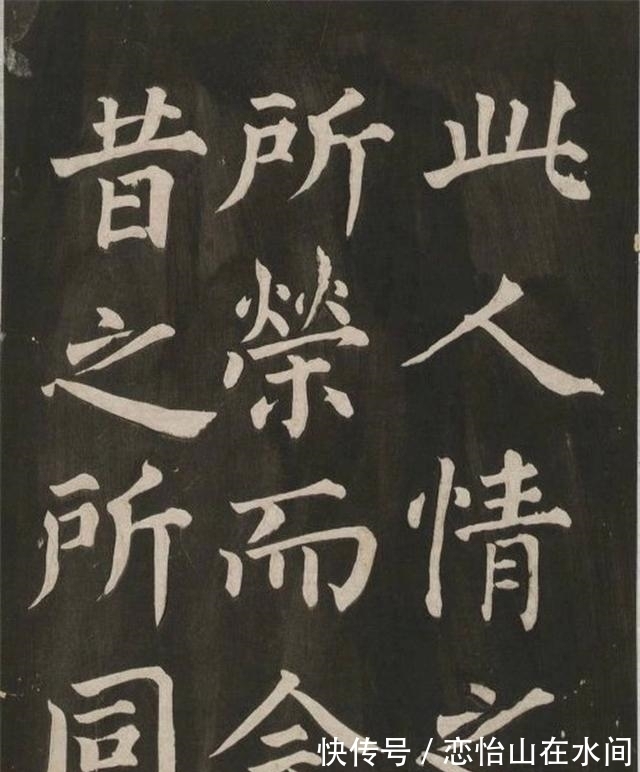 此人情之
所榮而今
昔之所同
快传号/恋怡山在水间